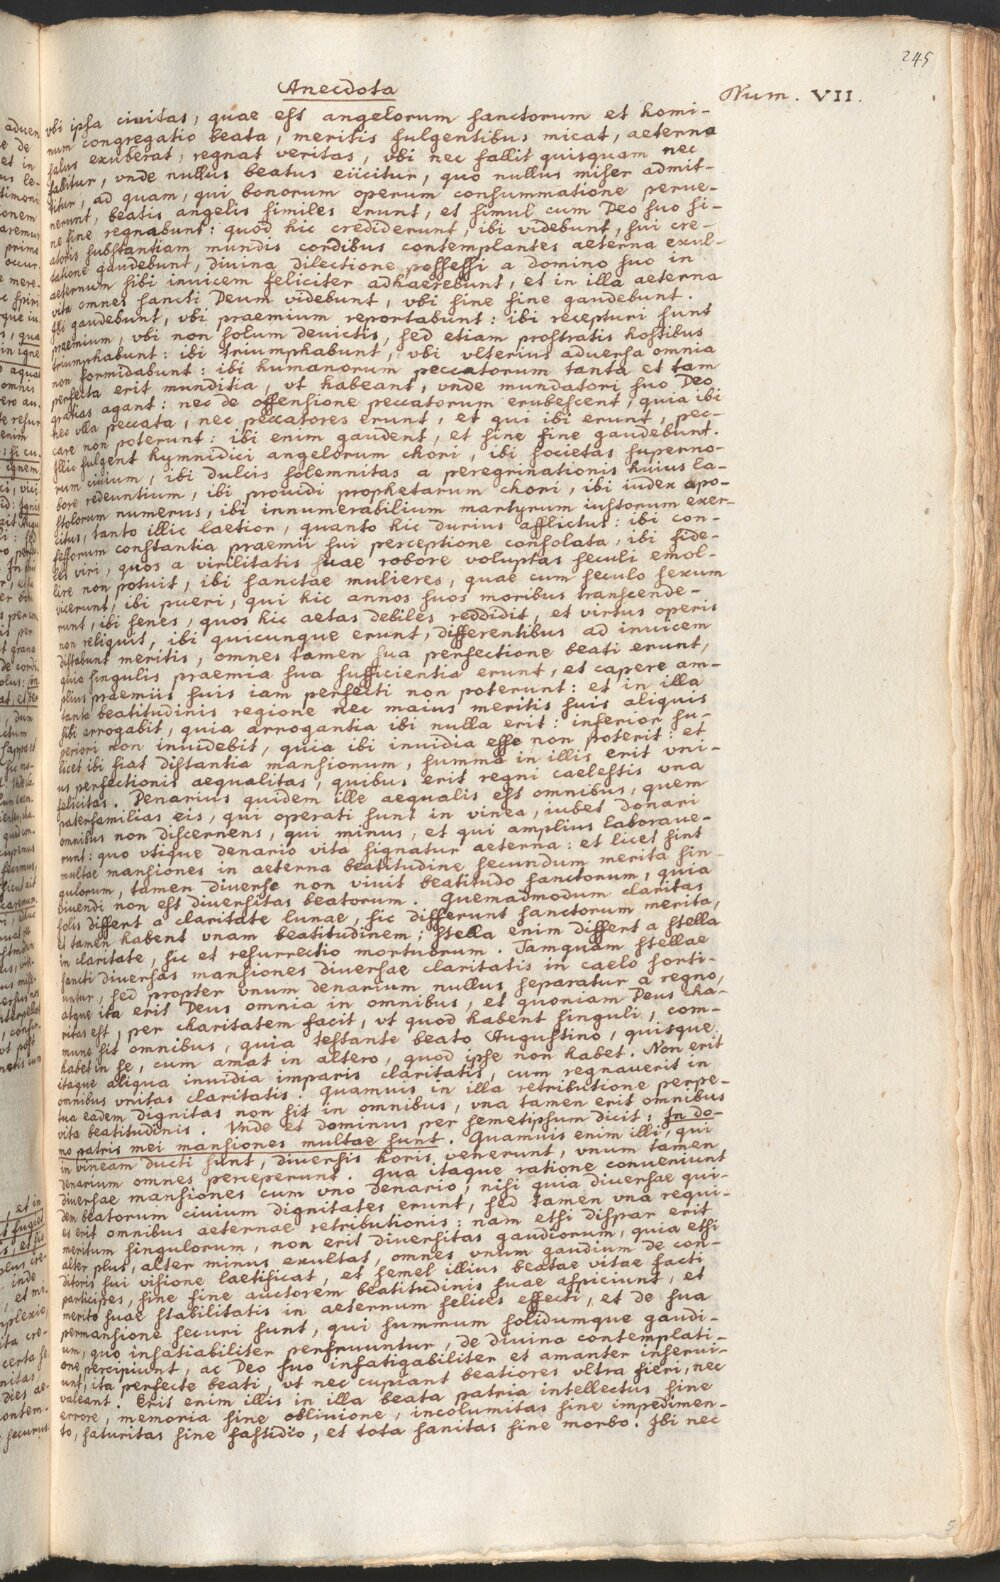 245
Anecdota
Num. VII.
vbi ipsa ciuitas, quae est angelorum sanctorum et homi-
num congregatio beata, meritis fulgentibus micat, aeterna
salus exuberat, regnat veritas, vbi nec fallit quisquam nec
fallitur, vnde nullus beatus eiicitur, quo nullus miser admit-
titur, ad quam, qui bonorum operum consummatione perue-
nerunt, beatis angelis similes erunt, et simul cum Deo suo si-
ne fine regnabunt: quod hic crediderunt, ibi videbunt, sui cre-
atoris substantiam mundis cordibus contemplantes aeterna exul-
tatione gaudebunt, diuina dilectione possessi a domino suo in
aeternum sibi inuicem feliciter adhaerebunt, et in illa aeterna
vita omnes sancti Deum videbunt, vbi sine fine gaudebunt.
Ibi gaudebunt, vbi praemium reportabunt: ibi recepturi sunt
praemium, vbi non solum deuictis, sed etiam prostratis hostibus
triumphabunt: ibi triumphabunt, vbi vlterius aduersa omnia
non formidabunt: ibi humanorum peccatorum tanta et tam
perfecta erit munditia, vt habeant, vnde mundatori suo Deo
gratias agant: nec de offensione peccatorum erubescent, quia ibi
nec vlla peccata, nec peccatores erunt, et qui ibi erunt, pec-
care non poterunt: ibi enim gaudent, et sine fine gaudebunt.
Illic fulgent hymnidici angelorum chori, ibi societas superno-
rum ciuium, ibi dulcis solemnitas a peregrinationis huius la-
bore redeuntium, ibi prouidi prophetarum chori, ibi iudex apo-
stolorum numerus, ibi innumerabilium martyrum iustorum exer-
citus, tanto illic laetior, quanto hic durius afflictus: ibi con-
fessorum constantia praemii sui perceptione consolata, ibi fide-
les viri, quos a virilitatis suae robore voluptas seculi emol-
lire non potuit, ibi sanctae mulieres, quae cum seculo sexum
vicerunt, ibi pueri, qui hic annos suos moribus transcende-
runt, ibi senes, quos hic aetas debiles reddidit, et virtus operis
non reliquit, ibi quicunque erunt, differentibus ad inuicem
distabunt meritis, omnes tamen sua perfectione beati erunt,
quia singulis praemia sua sufficientia erunt, et capere am-
plius praemiis suis iam perfecti non poterunt: et in illa
tanta beatitudinis regione nec maius meritis suis aliquis
sibi arrogabit, quia arrogantia ibi nulla erit: inferior su-
periori non inuidebit, quia ibi inuidia esse non poterit: et
licet ibi fiat distantia mansionum, summa in illis erit vni-
us perfectionis aequalitas, quibus erit regni caelestis vna
felicitas. Denarius quidem ille aequalis est omnibus, quem
paterfamilias eis, qui operati sunt in vinea, iubet donari
omnibus non discernens, qui minus, et qui amplius laboraue-
runt: quo vtique denario vita signatur aeterna: et licet sint
multae mansiones in aeterna beatitudine secundum merita sin-
gulorum, tamen diuerse non viuit beatitudo sanctorum, quia
viuendi non est diuersitas beatorum. Quemadmodum claritas
solis differt a claritate lunae, sic differunt sanctorum merita,
et tamen habent vnam beatitudinem: stella enim differt a stella
in claritate, sic et resurrectio mortuorum. Tamquam stellae
sancti diuersas mansiones diuersae claritatis in caelo sorti-
untur, sed propter vnum denarium nullus separatur a regno,
atque ita erit Deus omnia in omnibus, et quoniam Deus cha-
ritas est, per charitatem facit, vt quod habent singuli, com-
mune sit omnibus, quia testante beato Augustino, quisque
habet in se, cum amat in altero, quod ipse non habet. Non erit
itaque aliqua inuidia imparis claritatis, cum regnauerit in
omnibus vnitas claritatis. Quamuis in illa retributione perpe-
tua eadem dignitas non sit in omnibus, vna tamen erit omnibus
vita beatitudinis. Vnde et dominus per semetipsum dicit: In do-
mo patris mei mansiones multae sunt. Quamuis enim illi, qui
in vineam ducti sunt, diuersis horis venerunt, vnum tamen
denarium omnes perceperunt. Qua itaque ratione conueniunt
diuersae mansiones cum vno denario, nisi quia diuersae qui-
dem beatorum ciuium dignitates erunt, sed tamen vna requi-
es erit omnibus aeternae retributionis: nam etsi dispar erit
meritum singulorum, non erit diuersitas gaudiorum, quia etsi
alter plus, alter minus exultat, omnes vnum gaudium de con-
ditoris sui visione laetificat, et semel illius beatae vitae facti
participes, sine fine auctorem beatitudinis suae aspiciunt, et
merito suae stabilitatis in aeternum felices effecti, et de sua
permansione securi sunt, qui summum solidumque gaudi-
um, quo insatiabiliter perfruuntur, de diuina contemplati-
one percipiunt, ac Deo suo infatigabiliter et amanter inserui-
unt, ita perfecte beati, vt nec cupiant beatiores vltra fieri, nec
valeant. Erit enim illis in illa beata patria intellectus sine
errore, memoria sine obliuione, incolumitas sine impedimen-
to, saturitas sine fastidio, et tota sanitas sine morbo. Ibi nec